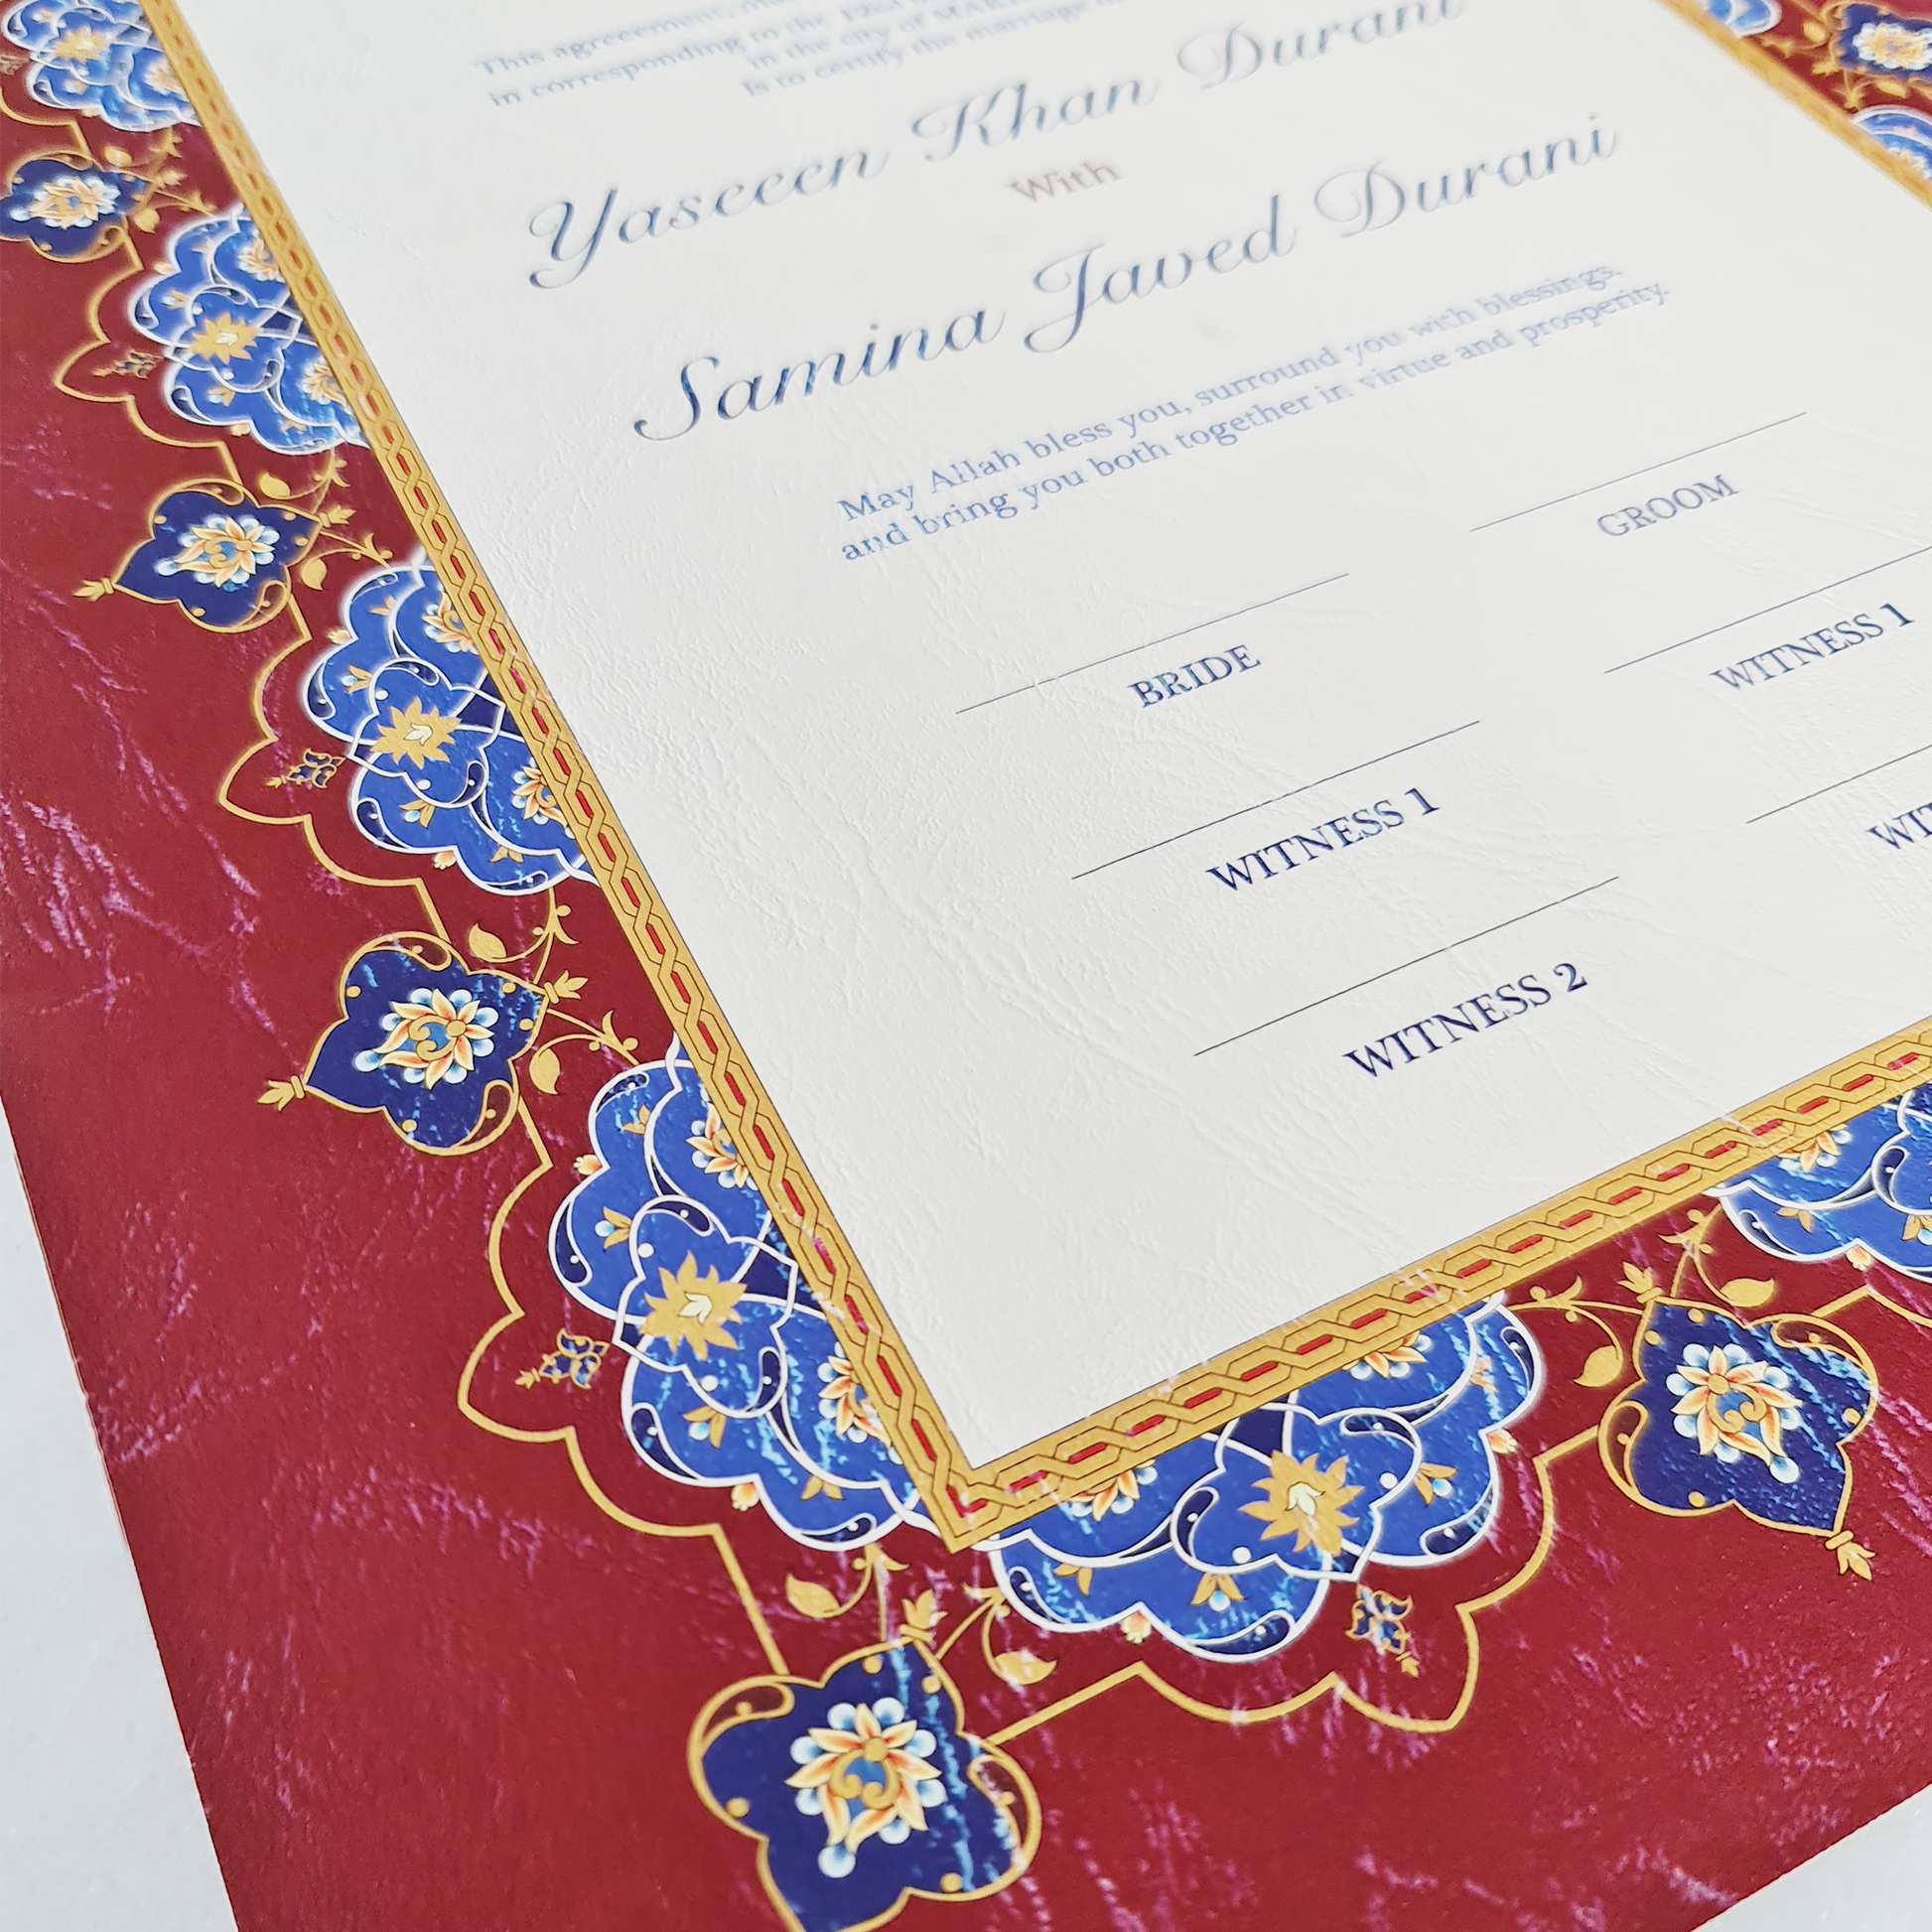 This agreement,
in corresponding to the 12
in the city of MAR
Is to certify the marriage of
Yaseen Khan Durani
With
Samina Javed Durani
May Allah bless you, surround you with blessings,
and bring you both together in virtue and prosperity.
GROOM
BRIDE
WITNESS 1
WITNESS 1
WIT
WITNESS 2